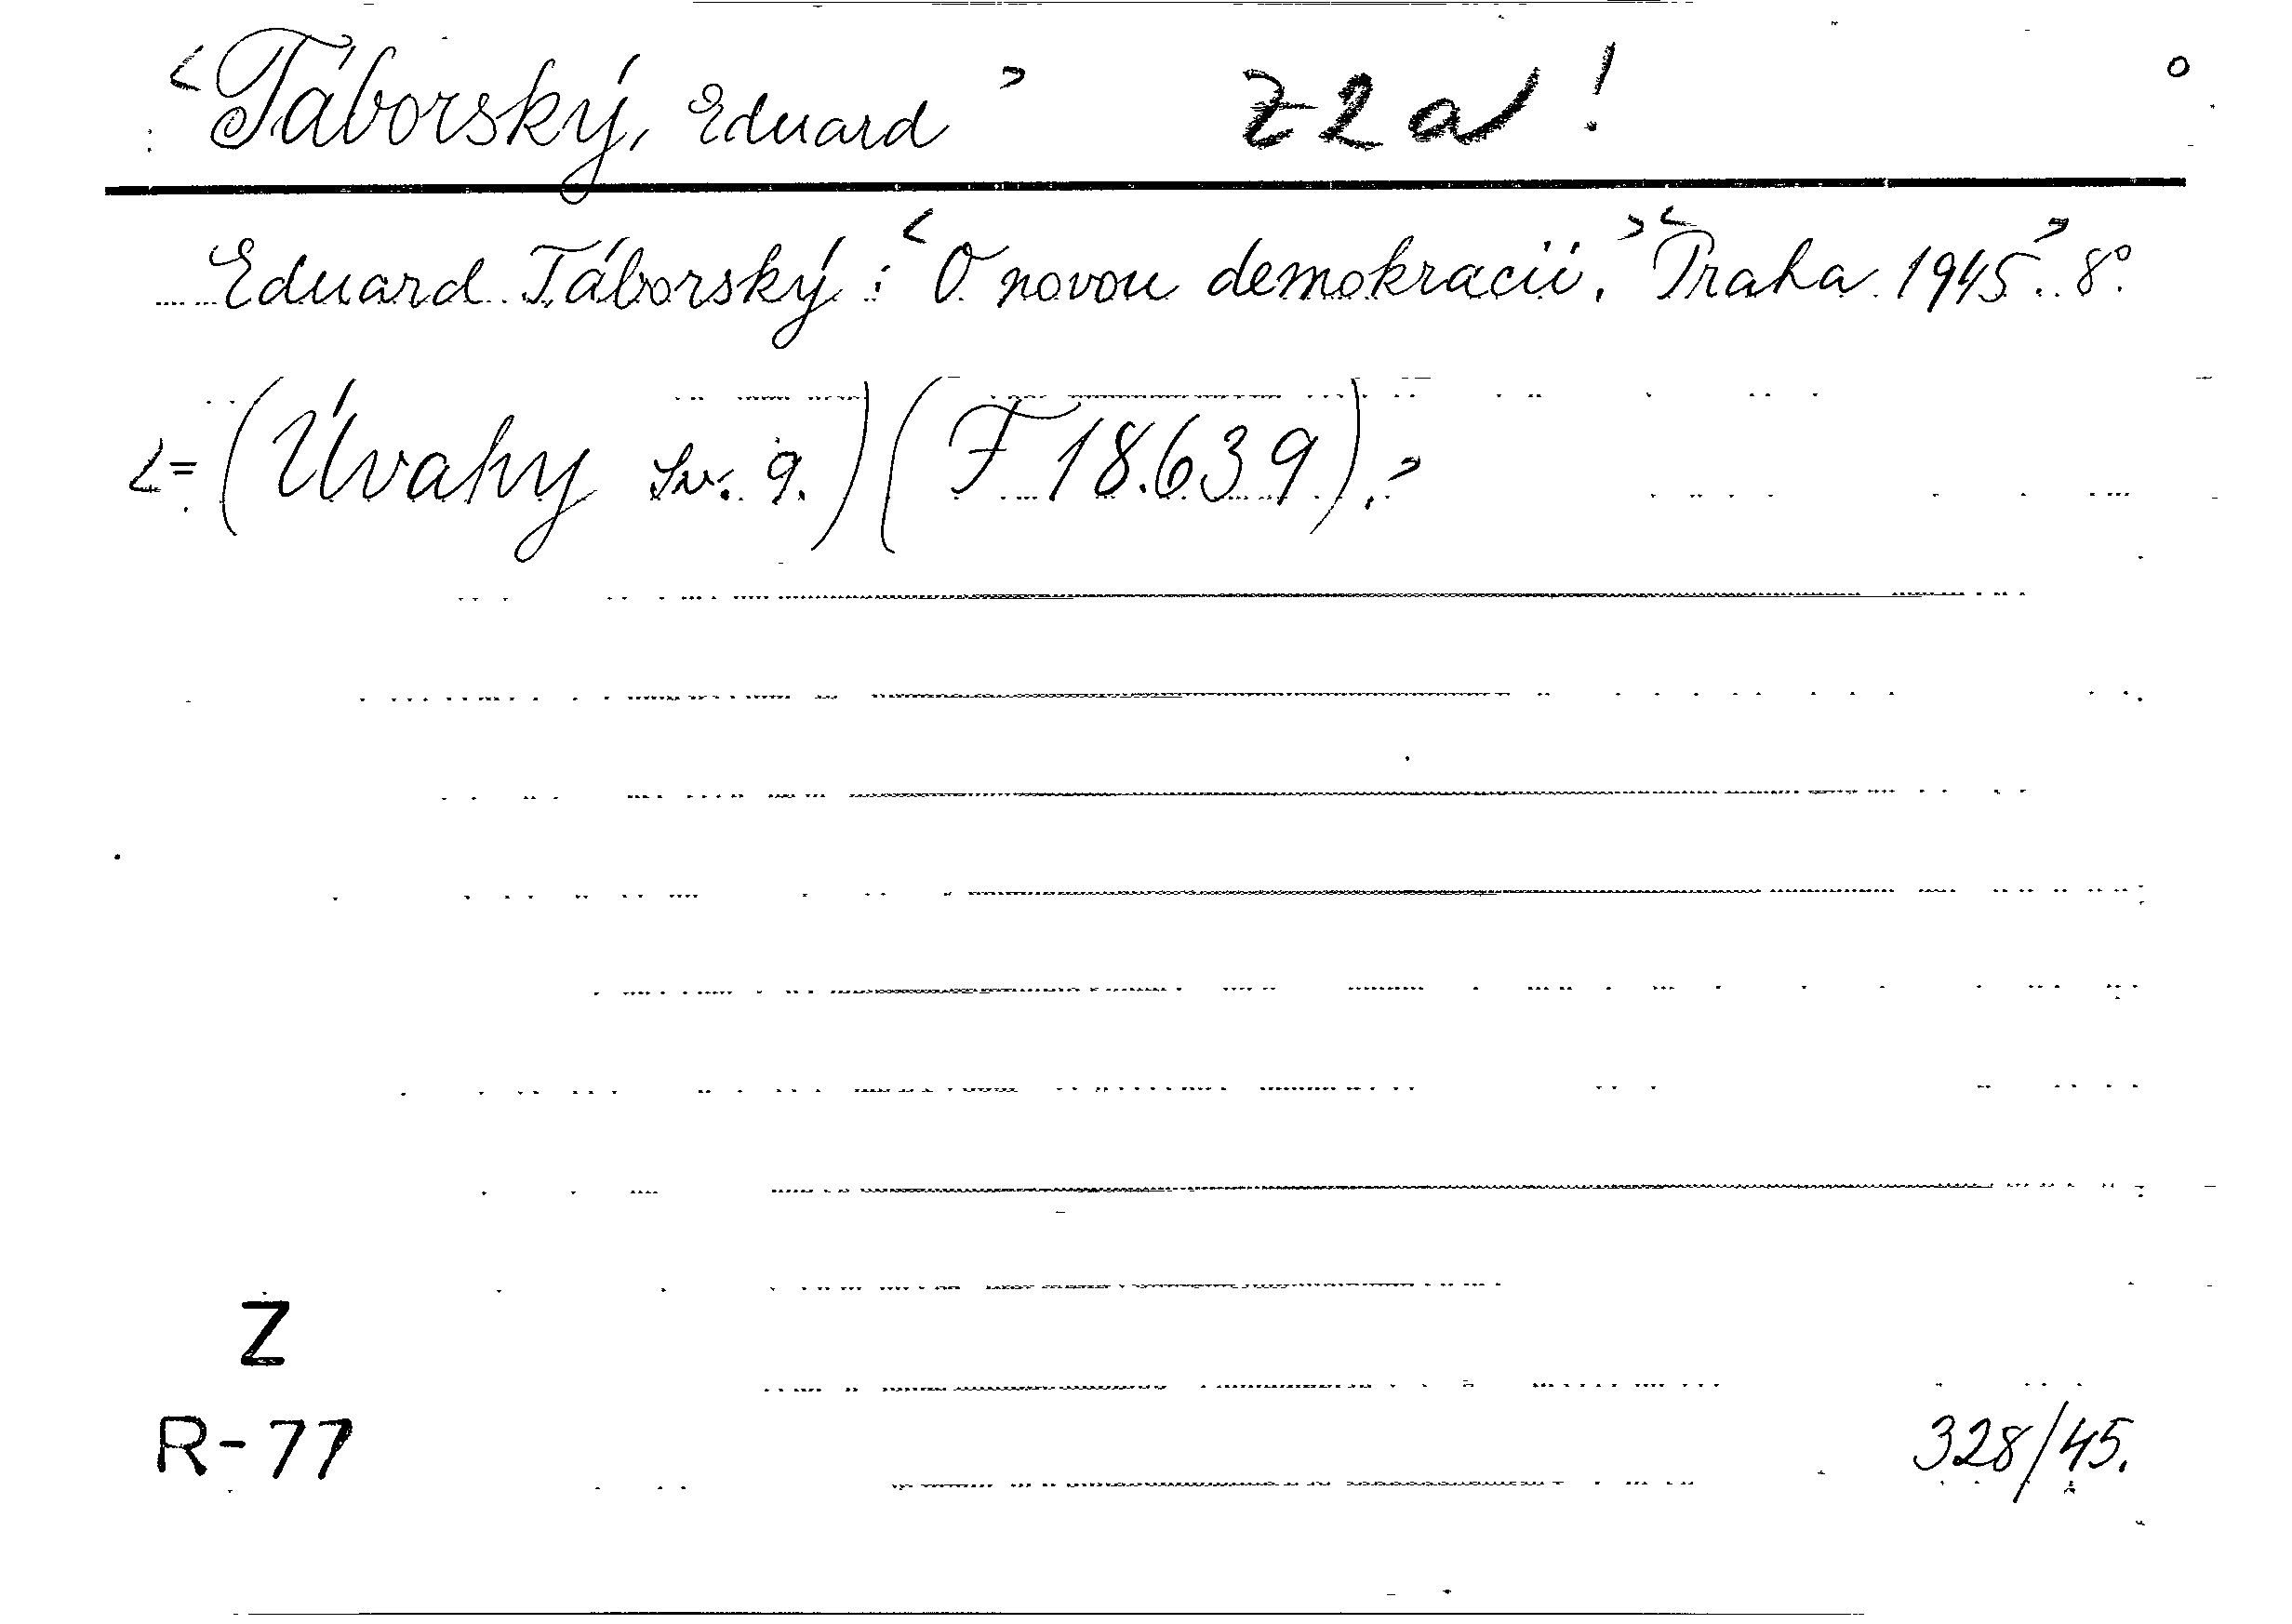 <Táborský, Eduard> Z 2 a !
Eduard Táborský: <O novou demokracii.> <Praha 1945.> 8°.
<= (Úvahy sv. 9.) (F 18.639).>
Z
R-77
328/45.